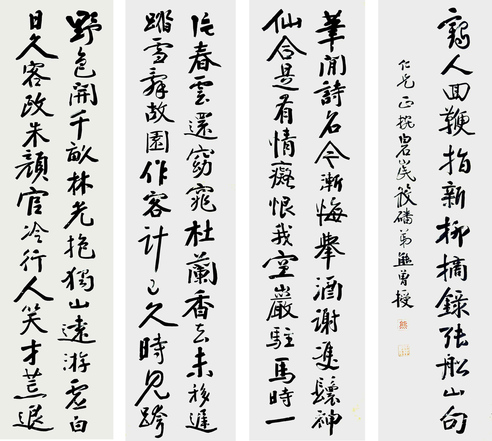 野色開千畝林光抱獨山遠游虛白
日久客改朱顏官冷行人笑才荒退
筆閒詩名今漸悔舉酒謝雙鬟神
仙合是有情癡恨我空巖駐馬時一
片春雲還窈窕杜蘭香去未移遲
踏雪辭故園作客計已久時見跨
驢人回鞭指新柳摘錄張船山句
仁兄正 磻弟熊曾授